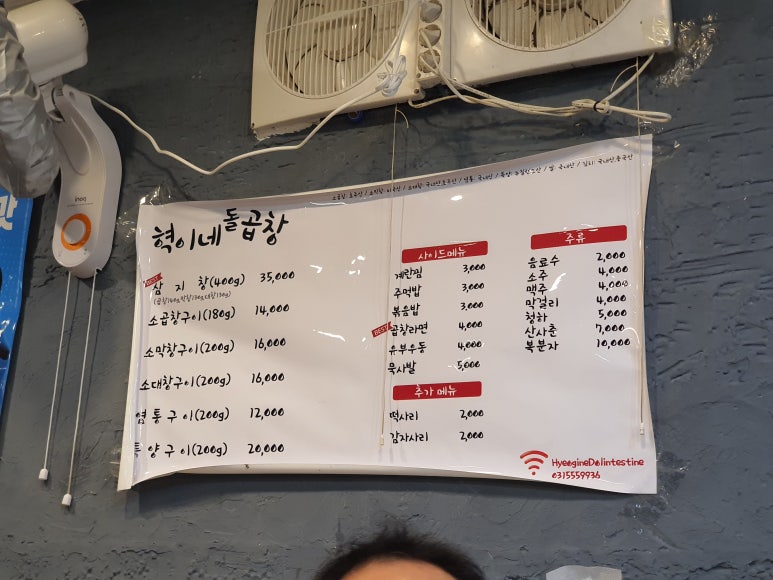 혁이네돌곱창
BEST
삼 지 창(400g) 35,000
소곱창구이(180g) 14,000
소막창구이(200g) 16,000
소대창구이(200g) 16,000
염 통 구 이(200g) 12,000
특 양 구 이(200g) 20,000
사이드메뉴
계란찜 3,000
주먹밥 3,000
볶음밥 3,000
BEST 곱창라면 4,000
유부우동 4,000
묵사발 5,000
추가 메뉴
떡사리 2,000
감자사리 2,000
주류
음료수 2,000
소주 4,000
맥주 4,000
막걸리 4,000
청하 5,000
산사춘 7,000
복분자 10,000
HyeogineDolintestine
0315559936
inoq
맛